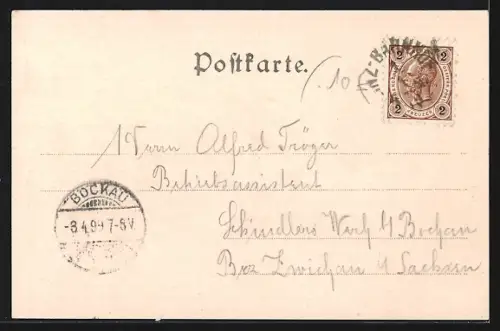 Postkarte.
2 2
2 2
(.10
Herrn Alfred Tröger
Betriebsassistent
Schindlers Werk b/ Bockau
Bez Zwickau i/ Sachsen
BOCKAU
-8.4.99 7-8V.